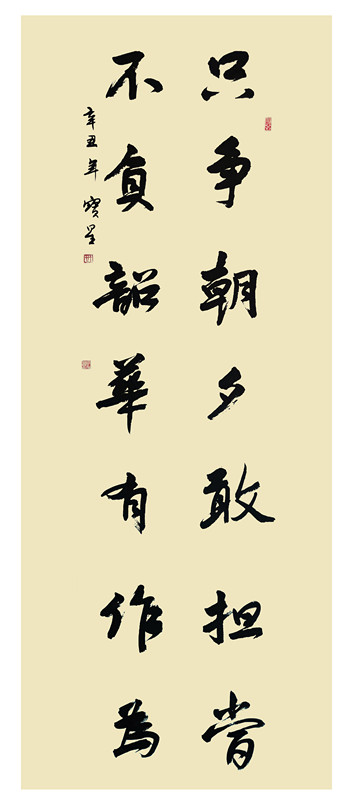 只争朝夕敢担當
不負韶華有作為
辛丑年寶呈